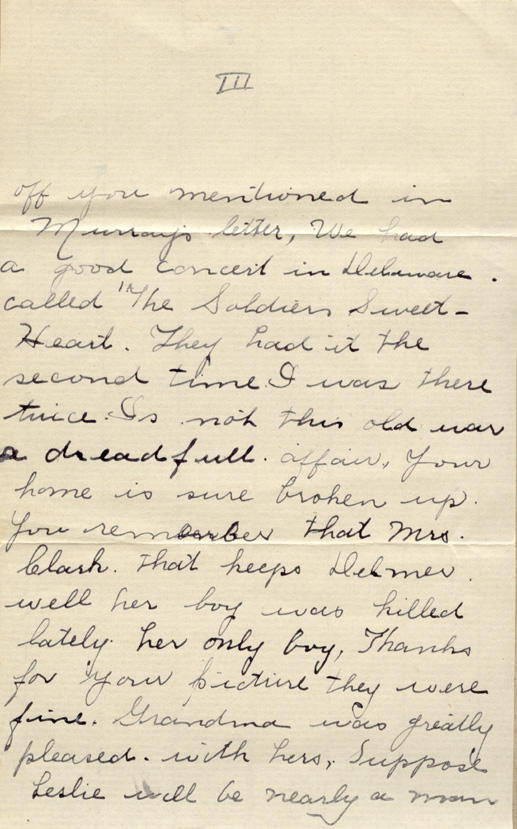 III
off you mentioned in
Murray's letter, We had
a good concert in Delaware.
called "The Soldiers Sweet-
Heart. They had it the
second time I was there
twice. Is not this old war
a dreadfull. affair, Your
home is sure broken up.
You remember that Mrs.
Clark. that keeps Delmer.
well her boy was killed
lately. her only boy, Thanks
for your picture they were
fine. Grandma was greatly
pleased. with hers, Suppose
Leslie will be nearly a man